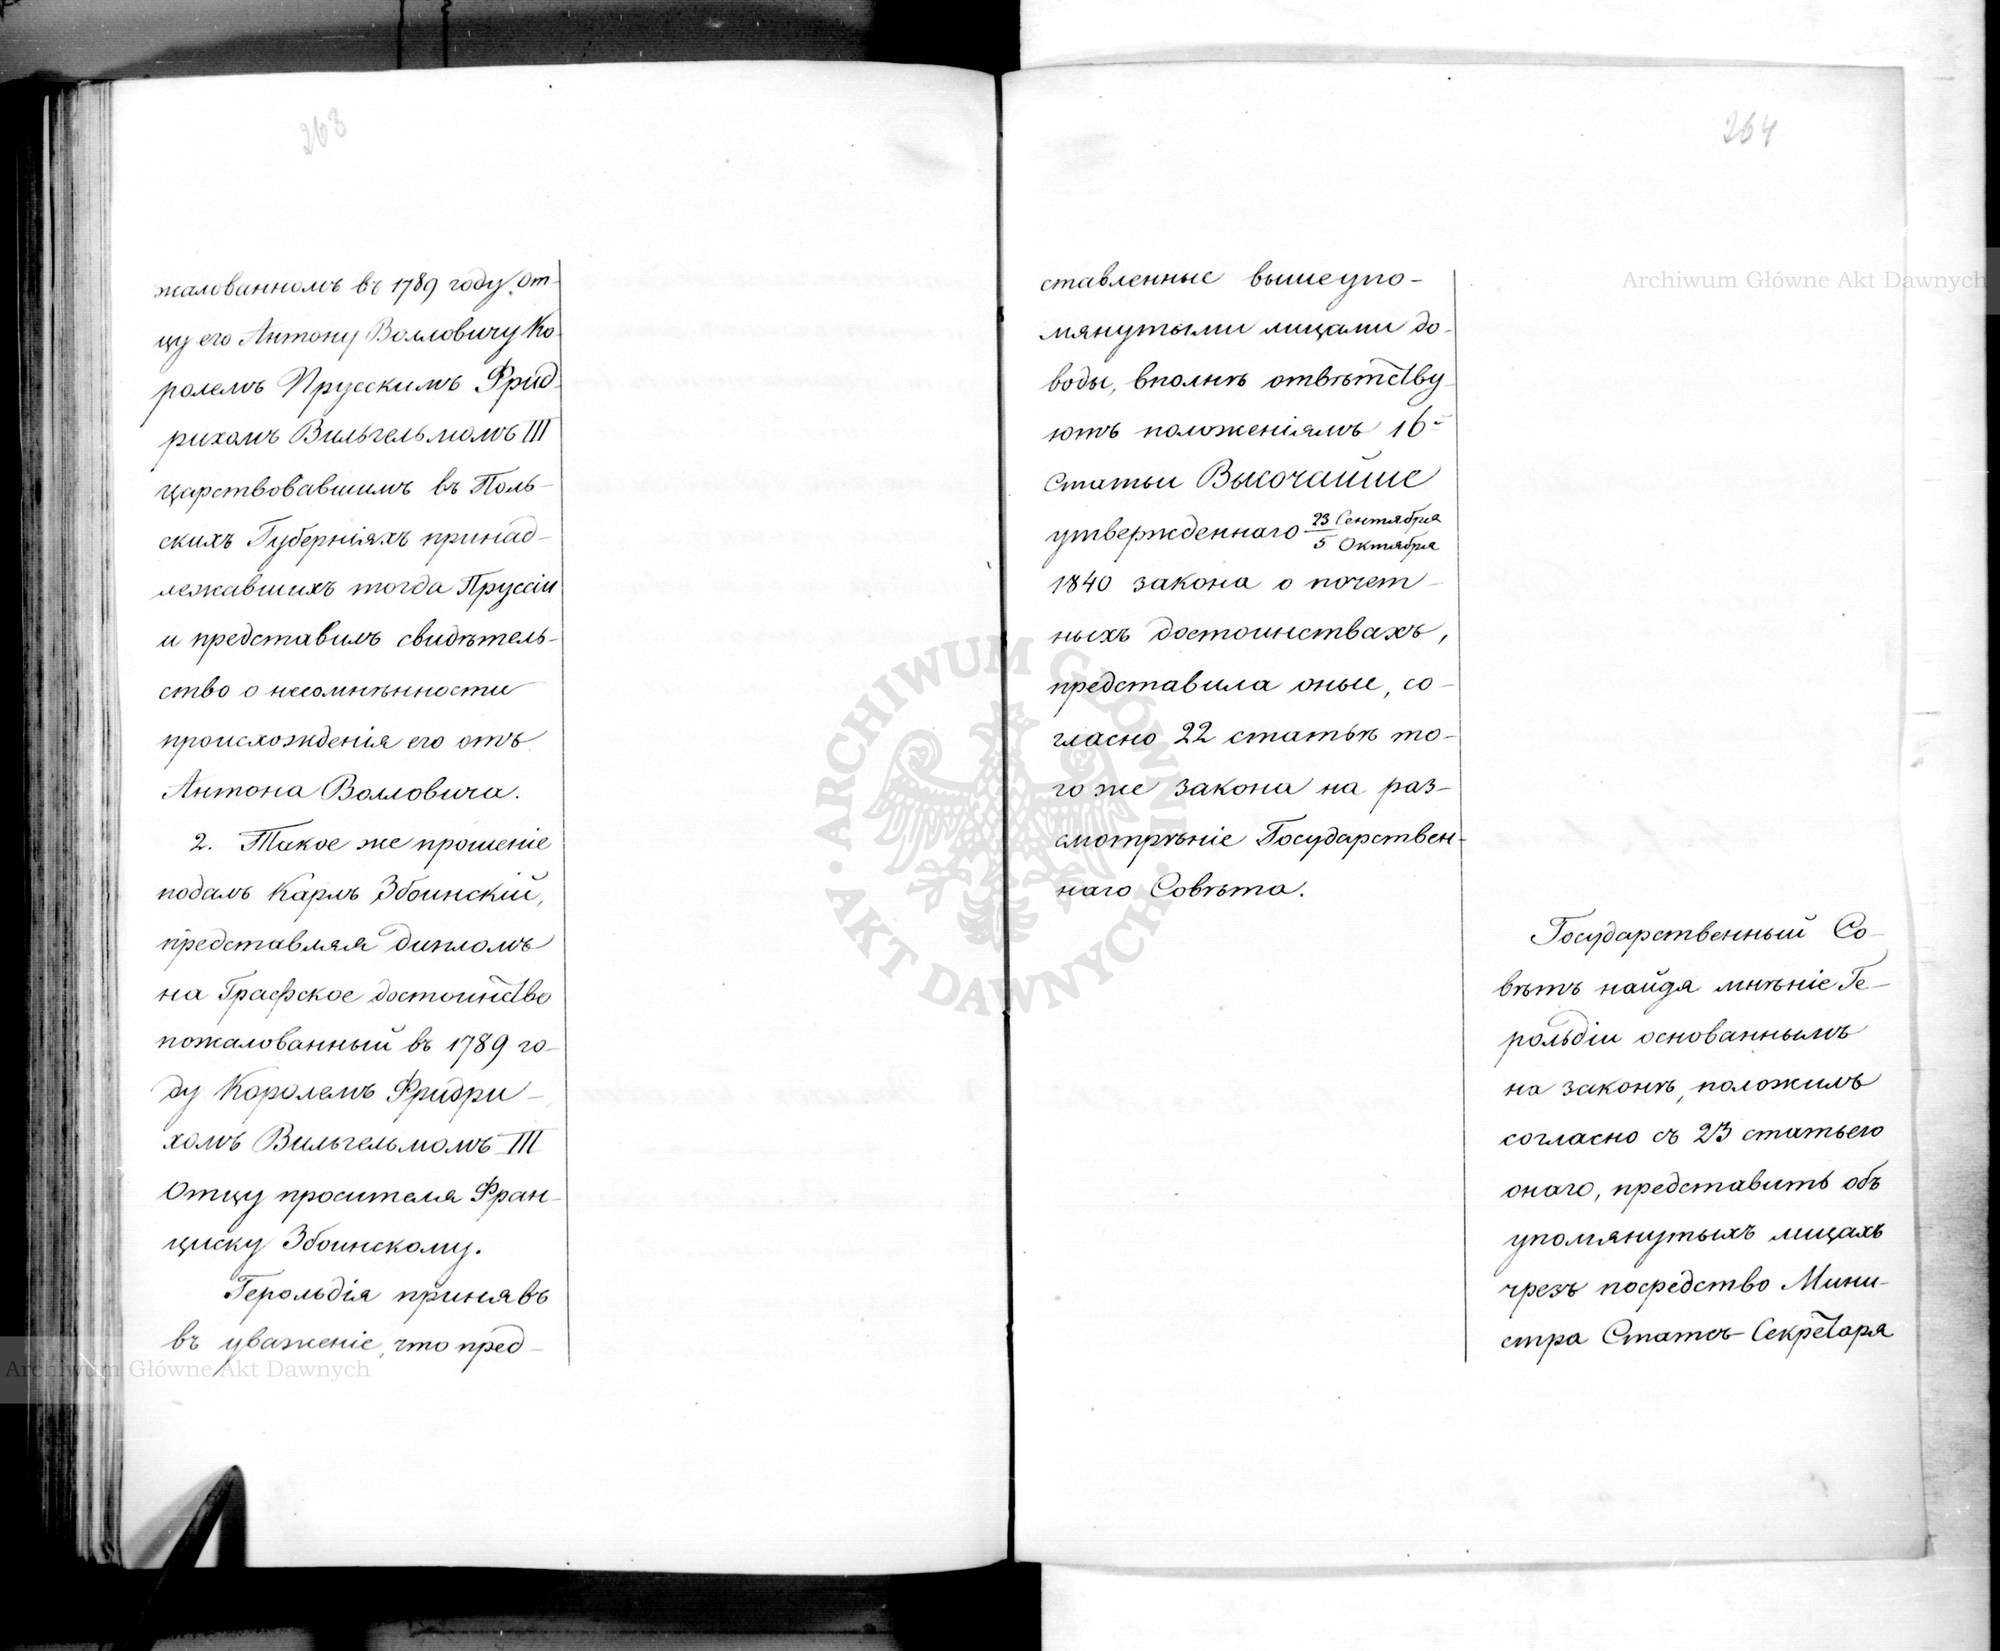 263
жалованномъ въ 1789 году От-
цу его Антону Волловичу Ко-
ролемъ Прусскимъ Фрид-
рихомъ Вильгельмомъ III
царствовавшимъ въ Поль-
скихъ Губерніяхъ принад-
лежавшихъ тогда Пруссіи
и представилъ свидѣтель-
ство о несомнѣнности
происхожденія его отъ
Антона Волловича.
2. Такое же прошеніе
подалъ Карлъ Збоинскій,
представляя дипломъ
на Графское достоинство
пожалованный въ 1789 го-
ду Королемъ Фридри-
хомъ Вильгельмомъ III
Отцу просителя Фран-
циску Збоинскому.
Герольдія принявъ
въ уваженіе, что пред-
264
ставленные вышеупо-
мянутыми лицами до-
воды, вполнѣ отвѣтству-
ютъ положеніямъ 16-
Статьи Высочайше
утвержденнаго 23 Сентября / 5 Октября
1840 закона о почет-
ныхъ достоинствахъ,
представила оные, со-
гласно 22 статьѣ то-
го же закона на раз-
смотрѣніе Государствен-
наго Совѣта.
Государственный Со-
вѣтъ найдя мнѣніе Ге-
рольдіи основаннымъ
на законѣ, положилъ
согласно съ 23 статьею
онаго, представить объ
упомянутыхъ лицахъ
чрезъ посредство Мини-
стра Статсъ-Секретаря
Archiwum Główne Akt Dawnych
Archiwum Główne Akt Dawnych
ARCHIWUM GŁÓWNE · AKT DAWNYCH ·